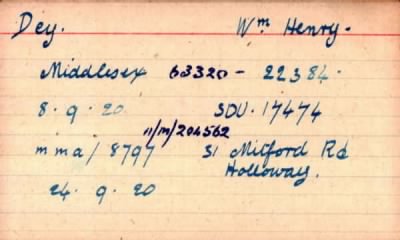 Dey. Wm Henry.
Middlesex 63320 - 22384.
8. 9. 20. SDU. 17474
11/M/204562
mma/8797 51 Milford Rd
Holloway.
24. 9. 20